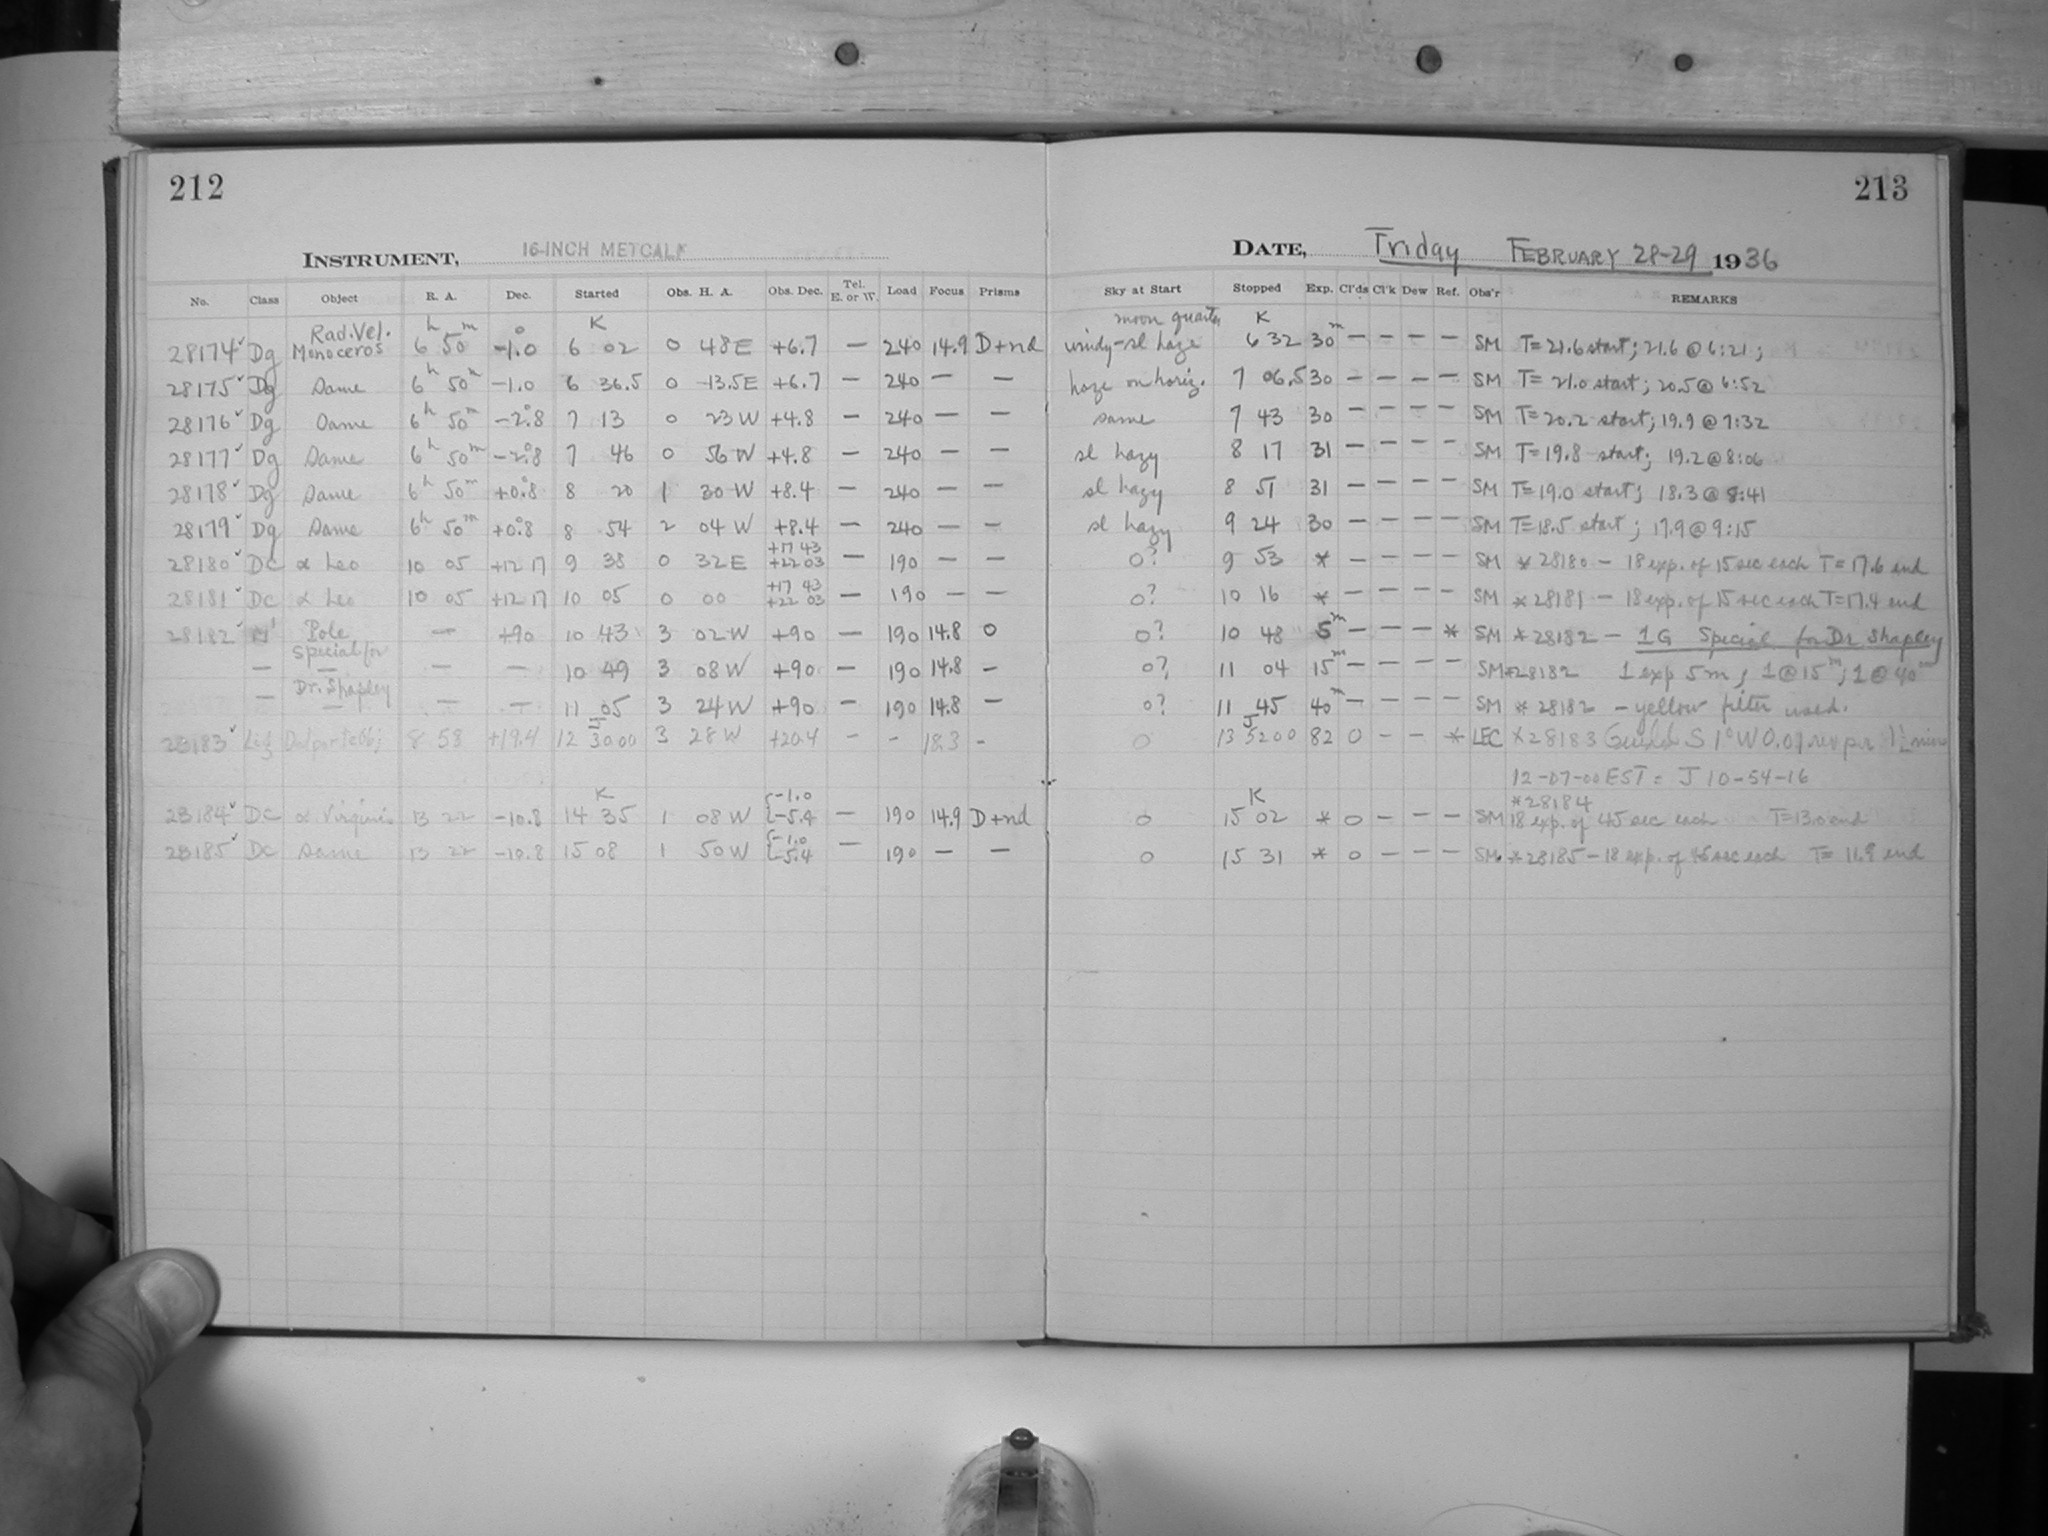 212
213
INSTRUMENT, 16-INCH METCALF
DATE, Friday FEBRUARY 28-29 1936
No. Class Object R. A. Dec. Started Obs. H. A. Obs. Dec. Tel. E. or W. Load Focus Prisms Sky at Start Stopped Exp. Cl'ds Cl'k Dew Ref. Obs'r REMARKS
Rad. Vel. K moon quarter K
28174 Dg Monoceros 6h 50m -1.0 6 02 0 48E +6.7 — 240 14.9 D+nd windy-sl haze 6 32 30m — — — — SM T=21.6 start; 21.6 @ 6:21;
28175 Dg Same 6h 50m -1.0 6 36.5 0 13.5E +6.7 — 240 — — haze on horiz. 7 06.5 30 — — — — SM T= 21.0 start; 20.5 @ 6:52
28176 Dg Same 6h 50m -2°.8 7 13 0 23W +4.8 — 240 — — same 7 43 30 — — — — SM T=20.2 start; 19.9 @ 7:32
28177 Dg Same 6h 50m -2°.8 7 46 0 56W +4.8 — 240 — — sl hazy 8 17 31 — — — — SM T=19.8 start; 19.2 @ 8:06
28178 Dg Same 6h 50m +0°.8 8 20 1 30W +8.4 — 240 — — sl hazy 8 51 31 — — — — SM T=19.0 start; 18.3 @ 8:41
28179 Dg Same 6h 50m +0°.8 8 54 2 04W +8.4 — 240 — — sl hazy 9 24 30 — — — — SM T=18.5 start; 17.9 @ 9:15
+17 43
28180 DC α Leo 10 05 +12 17 9 38 0 32E +22 03 — 190 — — 0? 9 53 * — — — — SM *28180 — 18 exp. of 15 sec each T=17.6 end
+17 43
28181 DC α Leo 10 05 +12 17 10 05 0 00 +22 03 — 190 — — 0? 10 16 * — — — — SM *28181 — 18 exp. of 15 sec each T=17.4 end
28182 Pole — +90 10 43 3 02W +90 — 190 14.8 0 0? 10 48 5m — — — * SM *28182 — 1G Special for Dr Shapley
Special for
— — — 10 49 3 08W +90 — 190 14.8 — 0? 11 04 15m — — — — SM *28182 1 exp 5m; 1@15m; 1@40m
Dr. Shapley
— — — 11 05 3 24W +90 — 190 14.8 — 0? 11 45 40m — — — — SM *28182 — yellow filter used.
J J
28183 Delporte Obj 8 58 +19.4 12 30 00 3 28W +20.4 - - 18.3 - 0 13 52 00 82 0 - - * LEC *28183 Guided S 1° W 0.09 rev per 1½ min
12-07-00 EST = J 10-54-16
K -1.0 K *28184
28184 DC α Virginis 13 22 -10.8 14 35 1 08W -5.4 — 190 14.9 D+nd 0 15 02 * 0 - — — SM 18 exp. of 45 sec each T=13.0 end
-1.0
28185 DC Same 13 22 -10.8 15 08 1 50W -5.4 — 190 — — 0 15 31 * 0 — — — SM. *28185 — 18 exp. of 45 sec each T= 11.9 end